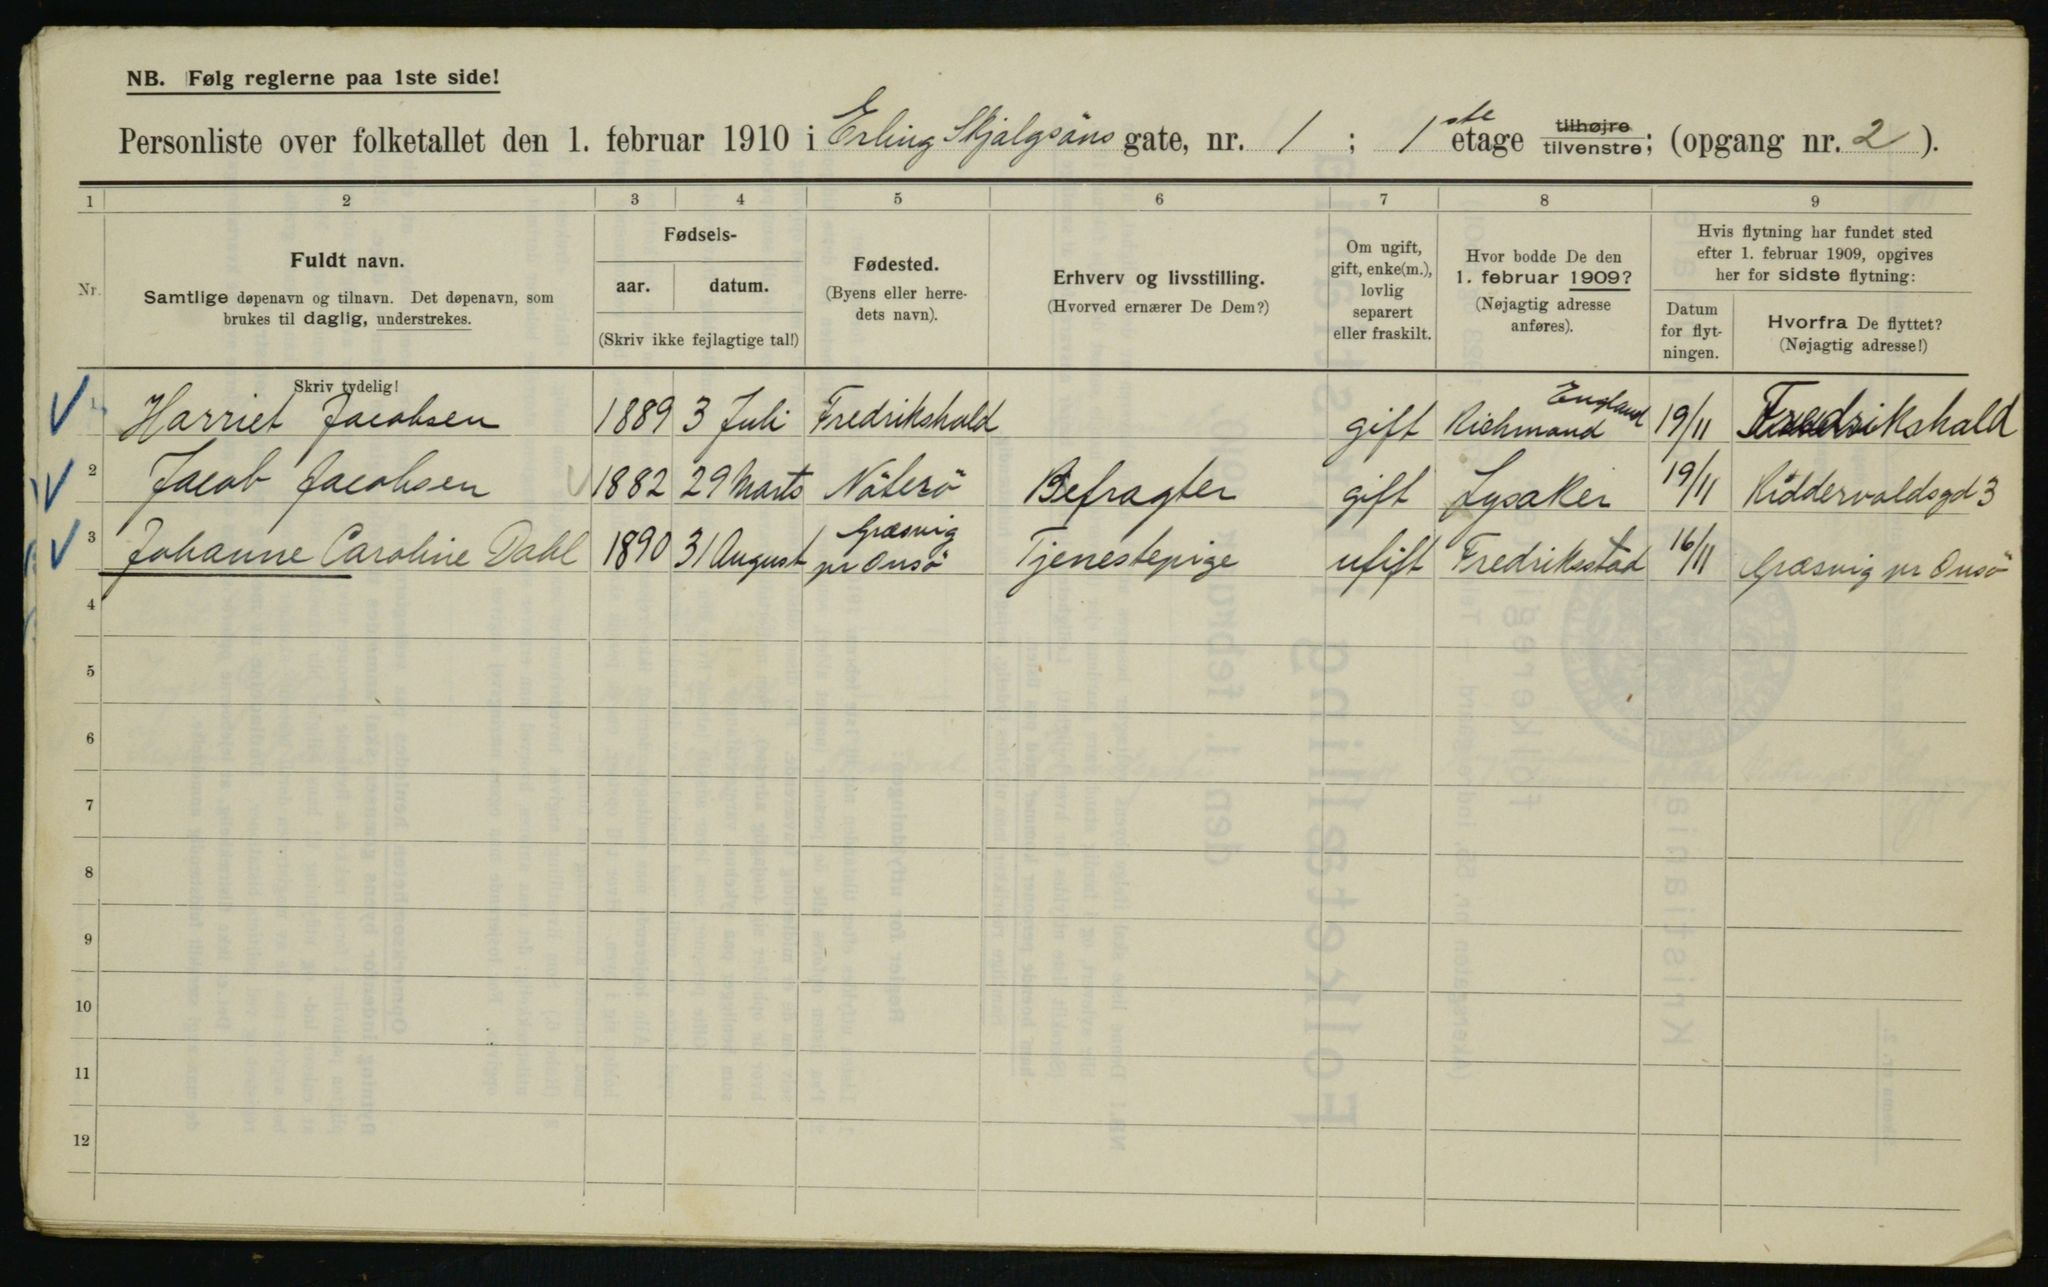 NB. Følg reglerne paa 1ste side!
Personliste over folketallet den 1. februar 1910 i Erling Skjalgsöns gate, nr. 1 ; 1ste etage tilhøjre tilvenstre; (opgang nr. 2 ).
1 2 3 4 5 6 7 8 9
Nr.
Fuldt navn.
Samtlige døpenavn og tilnavn. Det døpenavn, som
brukes til daglig, understrekes.
Skriv tydelig!
Fødsels-
aar. datum.
(Skriv ikke fejlagtige tal!)
Fødested.
(Byens eller herre-
dets navn).
Erhverv og livsstilling.
(Hvorved ernærer De Dem?)
Om ugift,
gift, enke(m.),
lovlig
separert
eller fraskilt.
Hvor bodde De den
1. februar 1909?
(Nøjagtig adresse
anføres).
Hvis flytning har fundet sted
efter 1. februar 1909, opgives
her for sidste flytning:
Datum
for flyt-
ningen.
Hvorfra De flyttet?
(Nøjagtig adresse!)
1 Harriet Jacobsen 1889 3 Juli Fredrikshald gift Richmond England 19/11 Fredrikshald
2 Jacob Jacobsen 1882 29 Marts Nöterö Befragter gift Lysaker 19/11 Riddervoldsgd 3
3 Johanne Caroline Dahl 1890 31 August Græsvig pr Onsö Tjenestepige ufift Fredriksstad 16/11 Græsvig pr Onsö
4
5
6
7
8
9
10
11
12